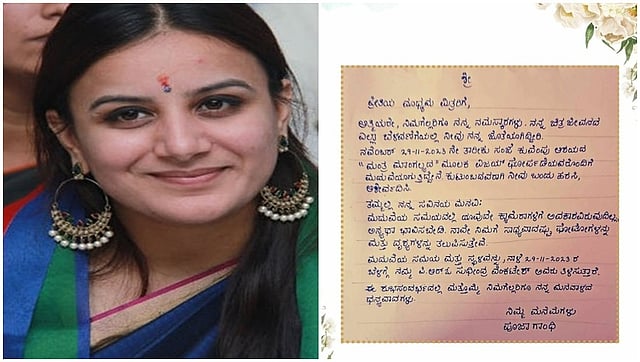 ಶ್ರೀ
ಪ್ರೀತಿಯ ಮಾಧ್ಯಮ ಮಿತ್ರರಿಗೆ,
ಆತ್ಮೀಯರೇ, ನಿಮಗೆಲ್ಲರಿಗೂ ನನ್ನ ನಮಸ್ಕಾರಗಳು. ನನ್ನ ಚಿತ್ರ ಜೀವನದ
ಎಲ್ಲಾ ಬೆಳವಣಿಗೆಯಲ್ಲಿ ನೀವು ನನ್ನ ಜೊತೆಯಾಗಿದ್ದೀರಿ.
ನವೆಂಬರ್ 29-11-2023 ನೇ ತಾರೀಕು ಸಂಜೆ ಕುವೆಂಪು ಆಶಯದ
"ಮಂತ್ರ ಮಾಂಗಲ್ಯದ" ಮೂಲಕ ವಿಜಯ್ ಘೋರ್ಪಡೆಯವರೊಂದಿಗೆ
ಮದುವೆಯಾಗುತ್ತಿದ್ದೇನೆ. ಕುಟುಂಬದವರಾಗಿ ನೀವು ಬಂದು ಹರಸಿ,
ಆಶೀರ್ವದಿಸಿ.
ತಮ್ಮಲ್ಲಿ ನನ್ನ ಸವಿನಯ ಮನವಿ:
ಮದುವೆಯ ಸಮಯದಲ್ಲಿ ಯಾವುದೇ ಕ್ಯಾಮೆರಾಗಳಿಗೆ ಅವಕಾಶವಿರುವುದಿಲ್ಲ,
ಅನ್ಯಥಾ ಭಾವಿಸಬೇಡಿ. ನಾವೇ ನಿಮಗೆ ಸಾಧ್ಯವಾದಷ್ಟು ಫೋಟೋಗಳನ್ನು
ಮತ್ತು ದೃಶ್ಯಗಳನ್ನು ತಲುಪಿಸುತ್ತೇವೆ.
ಮದುವೆಯ ಸಮಯ ಮತ್ತು ಸ್ಥಳವನ್ನು, ನಾಳೆ 29-11-2023 ರ
ಬೆಳಗ್ಗೆ ನಮ್ಮ ಪಿ.ಆರ್.ಓ ಸುಧೀಂದ್ರ ವೆಂಕಟೇಶ್ ಅವರು ತಿಳಿಸುತ್ತಾರೆ.
ಈ ಶುಭಸಂದರ್ಭದಲ್ಲಿ ಮತ್ತೊಮ್ಮೆ ನಿಮಗೆಲ್ಲರಿಗೂ ನನ್ನ ಮನದಾಳದ
ಧನ್ಯವಾದಗಳು.
ನಿಮ್ಮ ಮನೆಮಗಳು
ಪೂಜಾ ಗಾಂಧಿ